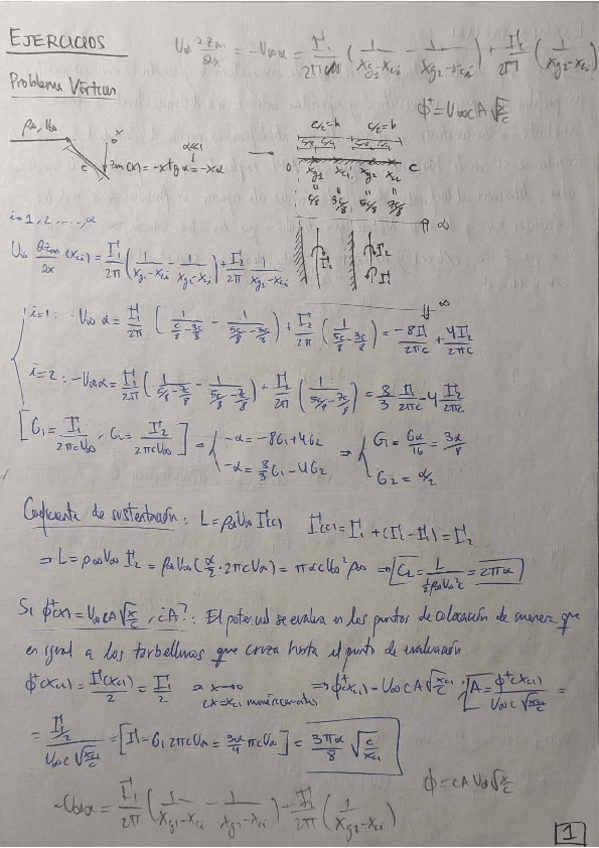 EJERCICIOS
U∞ ∂zm/∂x = -U∞α = Γ1/2π (1/(xg1-xci) - 1/(xg2-xci)) + Γ2/2π (1/(xg2-xci))
Problema Vórtices
ϕ⁺ = U∞cA√(x/c)
ρ∞, U∞
α<<1
zm(x) = -x tg α = -xα
c/2=h c/2=h
0 xg1 xc1 xg2 xc2 c
c/8 3c/8 5c/8 7c/8
∞
Γ1 Γ2 Γ1
i=1, 2, ....., α
U∞ ∂zm/∂x (xci) = Γ1/2π (1/(xg1-xci) - 1/(xg2-xci)) + Γ2/2π 1/(xg2-xci)
∞
i=1: -U∞ α = Γ1/2π (1/(c/8-3c/8) - 1/(5c/8-3c/8)) + Γ2/2π (1/(5c/8-3c/8)) = -8Γ1/2πc + 4Γ2/2πc
i=2: -U∞α = Γ1/2π (1/(c/8-7c/8) - 1/(5c/8-7c/8)) + Γ2/2π (1/(5c/8-7c/8)) = 8/3 Γ1/2πc - 4 Γ2/2πc
[G1 = Γ1/2πcU∞, G2 = Γ2/2πcU∞] = { -α = -8G1+4G2 ⇒ { G1 = 6α/16 = 3α/8
-α = 8/3 G1 - 4G2 G2 = α/2
Coeficiente de sustentación: L = ρ∞U∞Γ(c) Γ(c) = Γ1 + (Γ2-Γ1) = Γ2
⇒ L = ρ∞U∞Γ2 = ρ∞U∞(α/2 · 2πcU∞) = παcU∞²ρ∞ ⇒ CL = L/(½ρ∞U∞²c) = 2πα
Si ϕ⁺(x) = U∞cA√(x/c), ¿A?: El potencial se evalua en los puntos de colocación de manera que
es igual a los torbellinos que cruza hasta el punto de evaluación.
ϕ⁺(xc1) = Γ(xc1)/2 = Γ1/2 x→0 (x=xc1 numéricamente) ⇒ ϕ⁺(xc1) = U∞cA√(xc1/c) A = ϕ⁺(xc1)/(U∞c√(xc1/c)) =
= (Γ1/2)/(U∞c√(xc1/c)) = [Γ1 = G1 2πcU∞ = 3α/4 πcU∞] = 3πα/8 √(c/xc1)
ϕ = cAU∞√(x/c)
-U∞α = Γ1/2π (1/(xg1-xci) - 1/(xg2-xci)) + Γ2/2π (1/(xg2-xci))
1